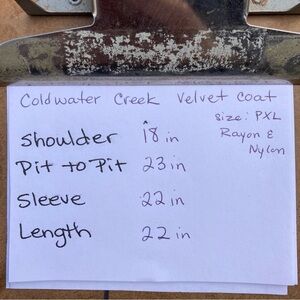 Coldwater Creek Velvet Coat
Size: PXL
Rayon &
Nylon
Shoulder 18 in
Pit to Pit 23 in
Sleeve 22 in
Length 22 in